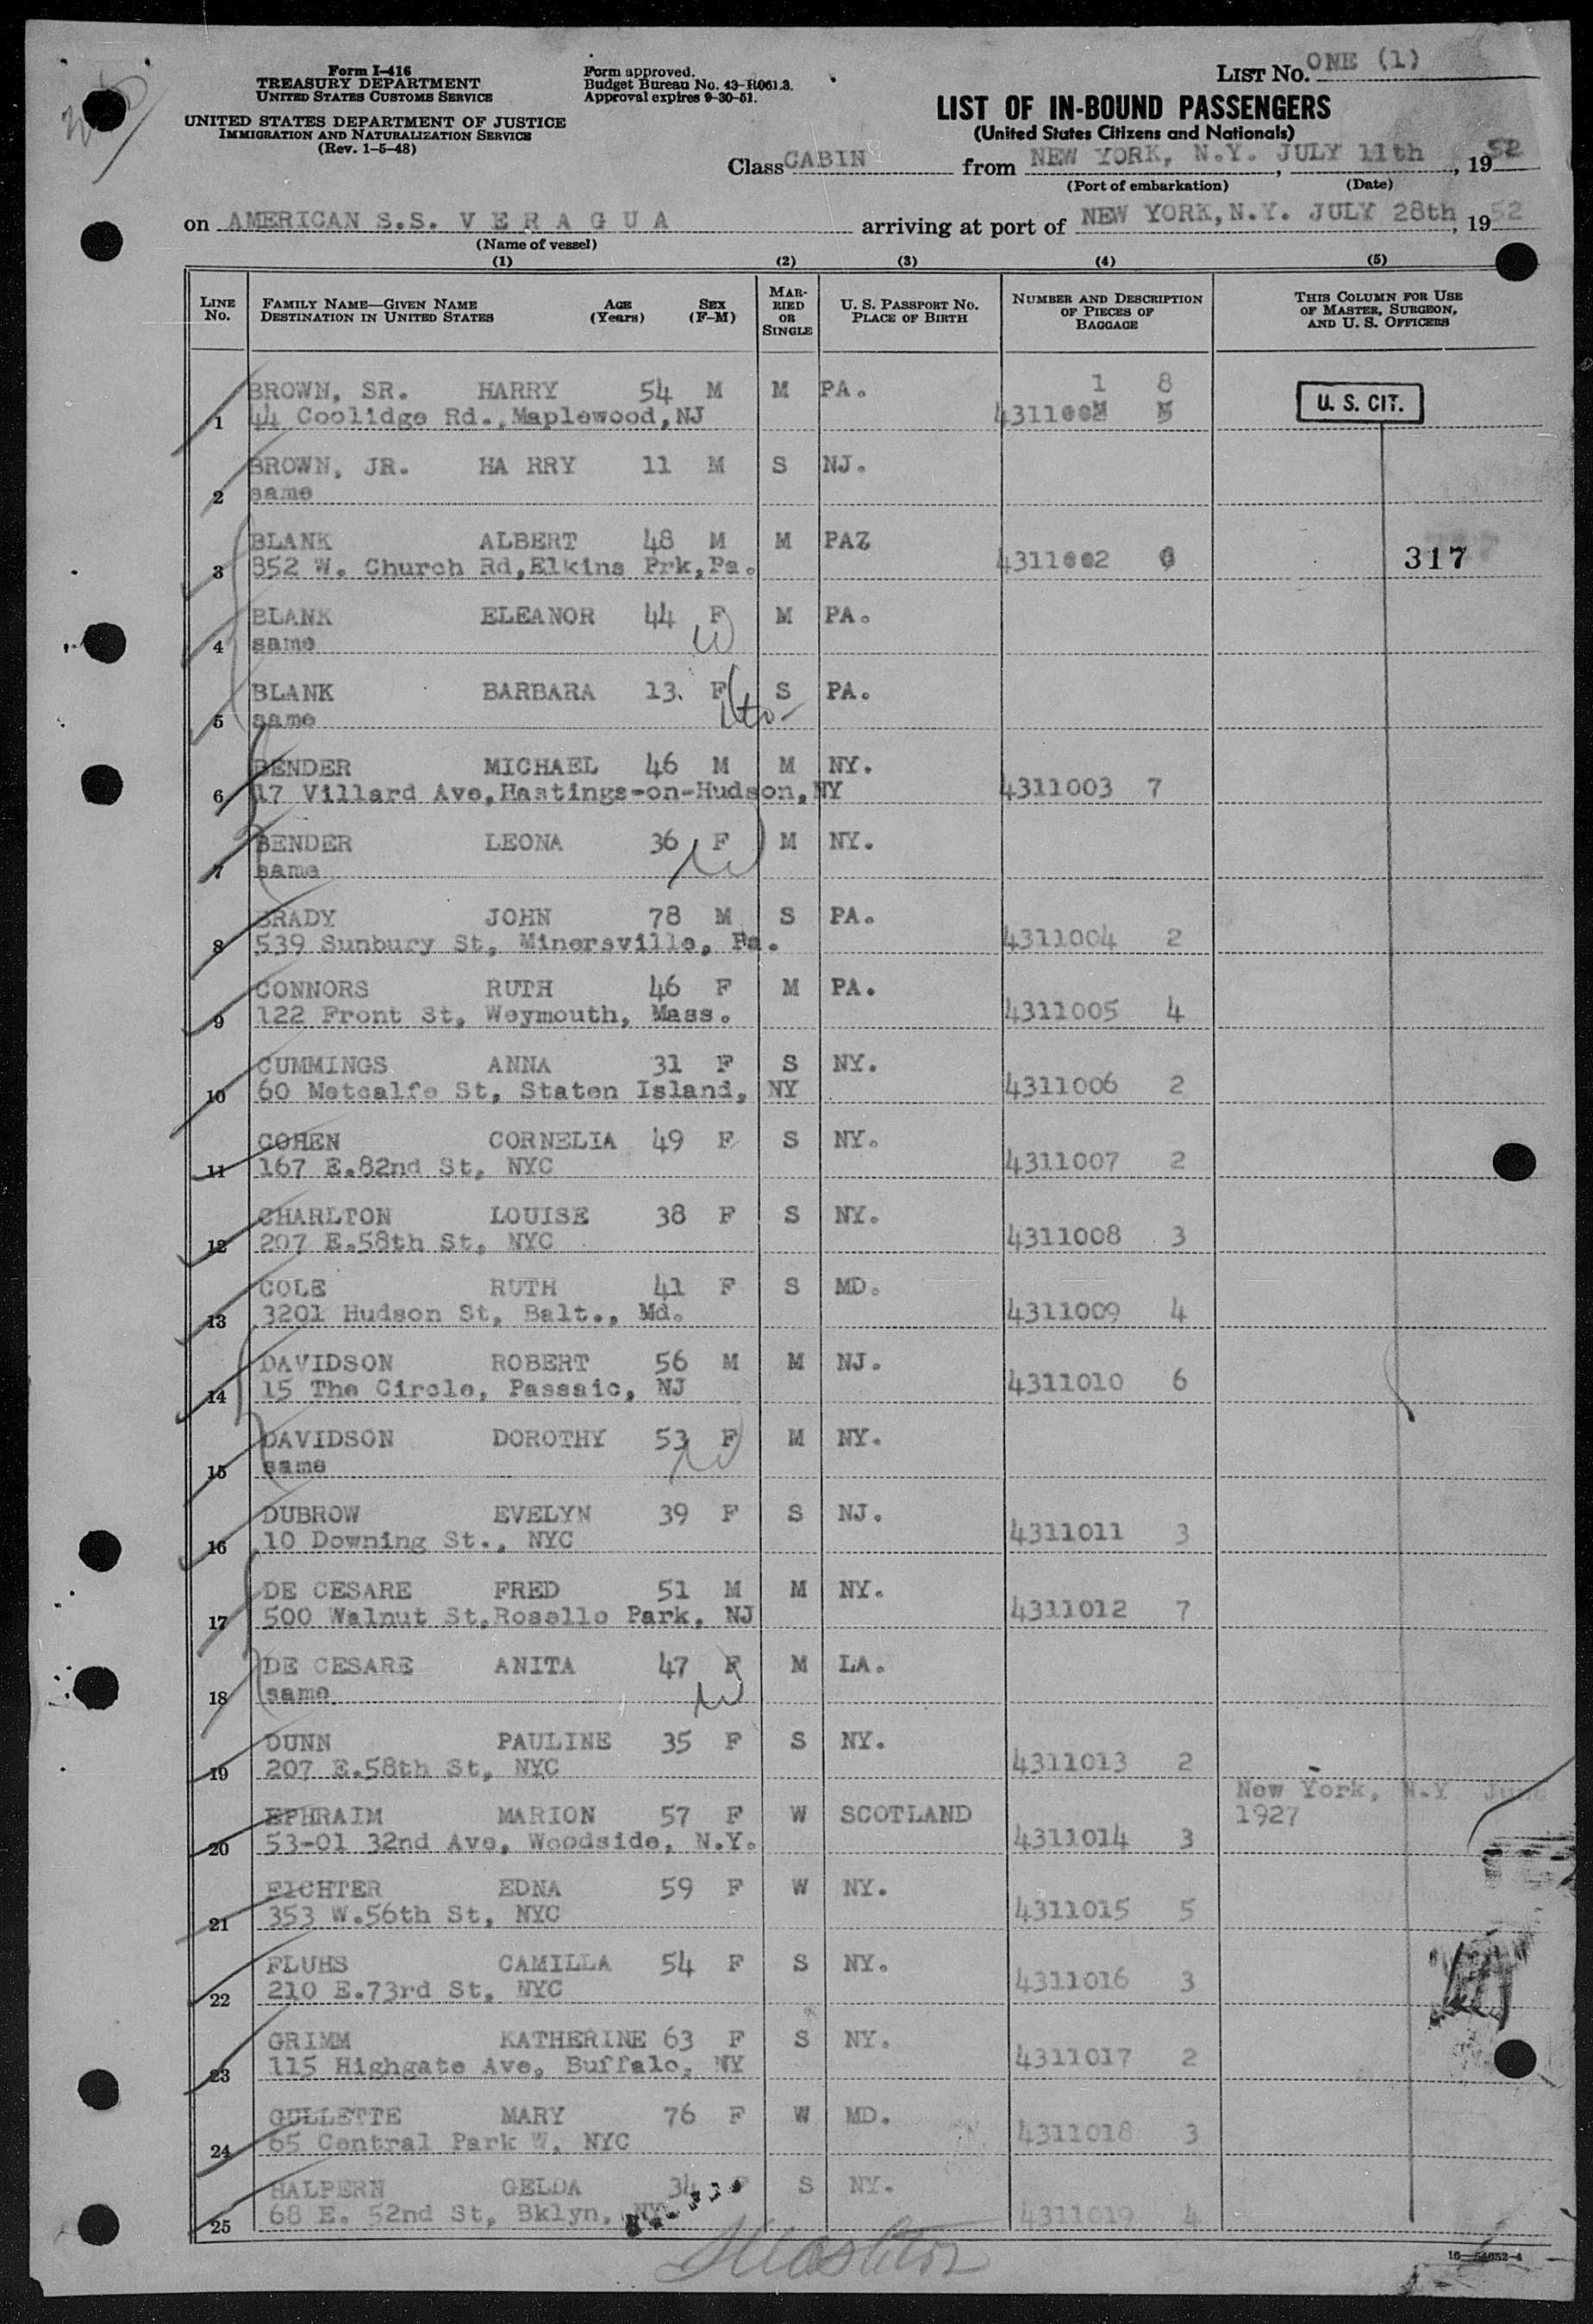 Form I-416
TREASURY DEPARTMENT
UNITED STATES CUSTOMS SERVICE
UNITED STATES DEPARTMENT OF JUSTICE
IMMIGRATION AND NATURALIZATION SERVICE
(Rev. 1-5-48)
Form approved.
Budget Bureau No. 43-R061.3.
Approval expires 9-30-51.
LIST NO. ONE (1)
LIST OF IN-BOUND PASSENGERS
(United States Citizens and Nationals)
Class CABIN from NEW YORK, N.Y. JULY 11th, 1952
(Port of embarkation) (Date)
on AMERICAN S.S. V E R A G U A arriving at port of NEW YORK, N.Y. JULY 28th, 1952
(Name of vessel)
(1) (2) (3) (4) (5)
LINE NO. FAMILY NAME—GIVEN NAME DESTINATION IN UNITED STATES AGE (Years) SEX (F-M) MARRIED OR SINGLE U. S. PASSPORT NO. PLACE OF BIRTH NUMBER AND DESCRIPTION OF PIECES OF BAGGAGE THIS COLUMN FOR USE OF MASTER, SURGEON, AND U. S. OFFICERS
BROWN, SR. HARRY 54 M M PA. 1 8
1 44 Coolidge Rd., Maplewood, NJ U. S. CIT.
BROWN, JR. HA RRY 11 M S NJ.
2 same
BLANK ALBERT 48 M M PAZ
3 852 W. Church Rd, Elkins Prk, Pa. 4311002 317
BLANK ELEANOR 44 F M PA.
4 same
BLANK BARBARA 13. F S PA.
5 same
BENDER MICHAEL 46 M M NY.
6 17 Villard Ave, Hastings-on-Hudson, NY 4311003 7
BENDER LEONA 36 F M NY.
7 same
BRADY JOHN 78 M S PA.
8 539 Sunbury St, Minersville, Pa. 4311004 2
CONNORS RUTH 46 F M PA.
9 122 Front St, Weymouth, Mass. 4311005 4
CUMMINGS ANNA 31 F S NY.
10 60 Metcalfe St, Staten Island, NY 4311006 2
COHEN CORNELIA 49 F S NY.
11 167 E.82nd St, NYC 4311007 2
CHARLTON LOUISE 38 F S NY.
12 207 E.58th St, NYC 4311008 3
COLE RUTH 41 F S MD.
13 3201 Hudson St, Balt., Md. 4311009 4
DAVIDSON ROBERT 56 M M NJ.
14 15 The Circle, Passaic, NJ 4311010 6
DAVIDSON DOROTHY 53 F M NY.
15 same
DUBROW EVELYN 39 F S NJ.
16 10 Downing St., NYC 4311011 3
DE CESARE FRED 51 M M NY.
17 500 Walnut St, Roselle Park, NJ 4311012 7
DE CESARE ANITA 47 F M LA.
18 same
DUNN PAULINE 35 F S NY.
19 207 E.58th St, NYC 4311013 2
New York, N.Y. June
EPHRAIM MARION 57 F W SCOTLAND 1927
20 53-01 32nd Ave, Woodside, N.Y. 4311014 3
FICHTER EDNA 59 F W NY.
21 353 W.56th St, NYC 4311015 5
FLUHS CAMILLA 54 F S NY.
22 210 E.73rd St, NYC 4311016 3
GRIMM KATHERINE 63 F S NY.
23 115 Highgate Ave, Buffalo, NY 4311017 2
GULLETTE MARY 76 F W MD.
24 65 Central Park W, NYC 4311018 3
HALPERN GELDA 34 F S NY.
25 68 E. 52nd St, Bklyn, NY 4311019 4